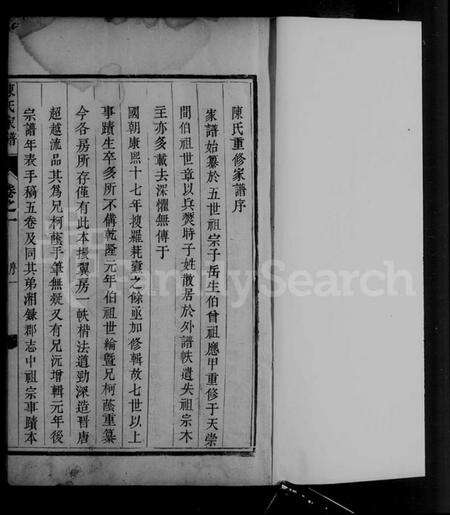 陳氏重修家譜序
家譜始纂於五世祖宗子岳生伯曾祖應甲重修于天崇
間伯祖世章以兵燹時子姓散居於外譜帙遺失祖宗木
主亦多載去深懼無傳于
國朝康熙十七年搜羅耗蠹之餘亟加修輯故七世以上
事蹟生卒多所不備乾隆元年伯祖世綸暨兄柯蔭重纂
今各房所存僅有此本援翼房一帙楷法遒勁深造晉唐
超越流品其為兄柯蔭手筆無疑又有兄沅增輯元年後
宗譜年表手稿五卷及同其弟湘錄郡志中祖宗事蹟本
陳氏家譜
卷之一
FamilySearch